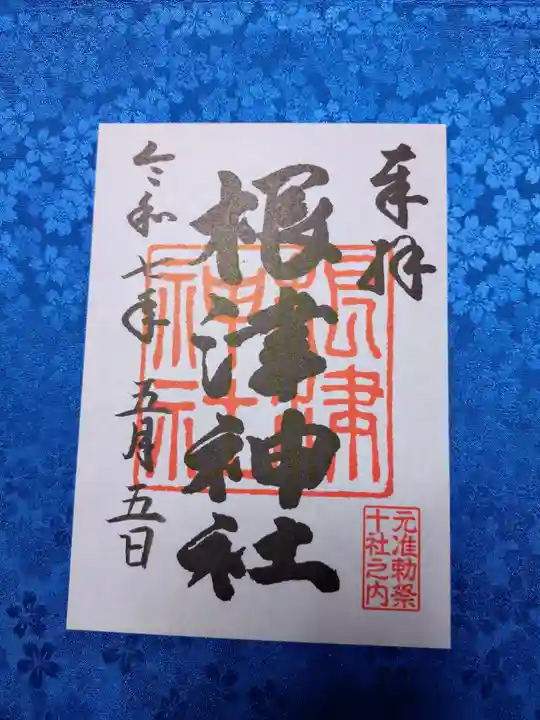 奉拝
根津神社
根津
神社
元准勅祭
十社之内
令和七年 五月 五日